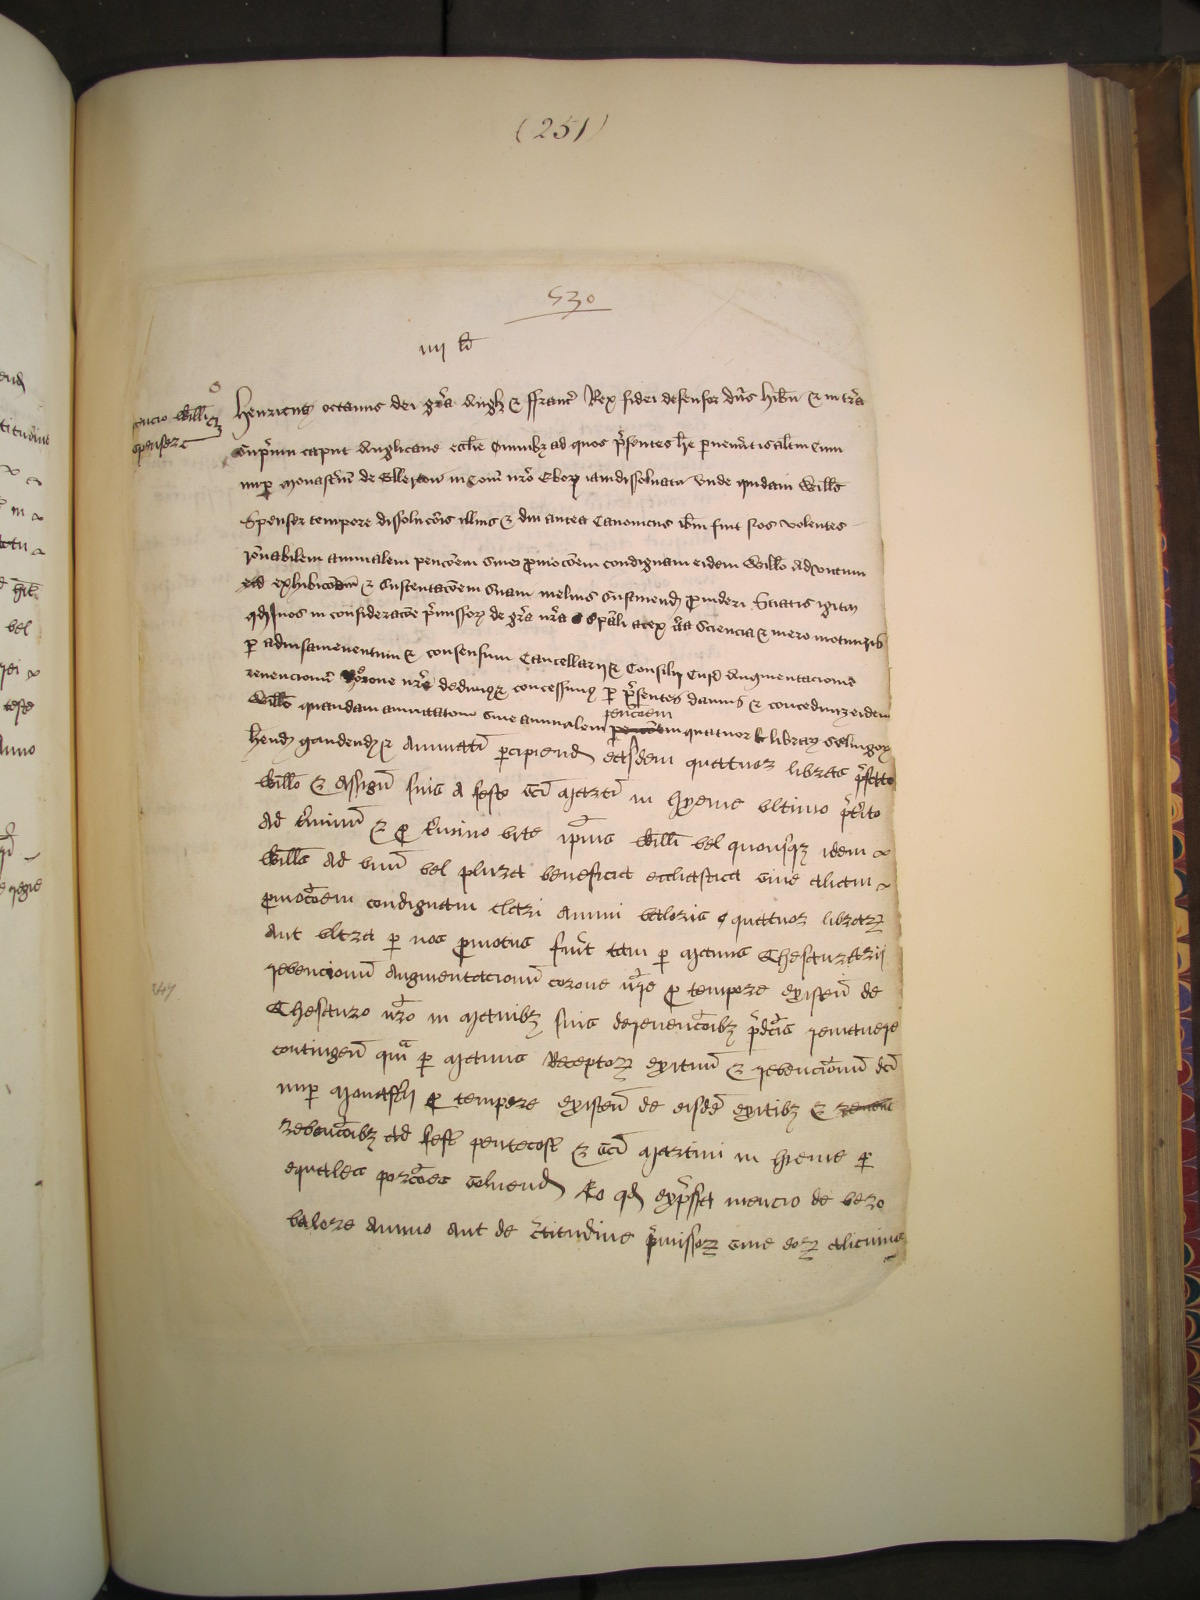 (251)
530
iiij li
Henricus octavus dei gra Anglie & ffranc Rex fidei defensor dns hibn & in tra
Willi
Spenser
Supmu caput Anglicane ecclie Omnibz ad quos psentes lre pvenint saltm Cum
nup Monasteriu de Ellerton in Com nro Ebor iam dissolvatur Unde quidam Wills
Spenser tempore dissolucois illius & diu antea Canonicus ibm fuit Nos volentes
ronabilem annualem pencoem sive pmocoem condignam eidem Willo ad victum
exhibicoem & sustentacoem suam melius sustinend pvideri Sciatis igitur
qd nos in consideracoe pmissor de gra nra spali ac ex cta sciencia & mero motu nris
p advisamentum & consensum Cancellarij & Consilij Cur Augmentacionu
revencionu Corone nre dedimus & concessimus p psentes damus & concedimus eidem
pencoem
Wills quandam annuitatem sive annualem quatuor librar sterlingor
hend gaudend & Annuati pcipiend easdem quatuor libras pfato
Willo & assign suis a festo sci Marti in hyeme ultimo ptito
Ad tminu & p tmino vite ipius Willi vel quousqz idem
Wills ad unu vel plura beneficia eccliastica sive aliam
pmocoem condignam clari annui valoris quatuor librarz
aut ultra p nos pmotus fuit tam p manus Thesaurarij
revencionu augmentacionu corone nre p tempore existen de
Thesauro nro in manibz suis de revencoibz pdcis remanere
contingen qm p manus Receptorz exituu & revencionu dci
nup Monastij p tempore existen de eisde exitibz & reven
revencoibz ad fest pentecost & sci Martini in hieme p
equales porcoes solvend Eo qd expssa mencio de vero
valore Annuo aut de ctitudine pmissorz sive eorz alicuius